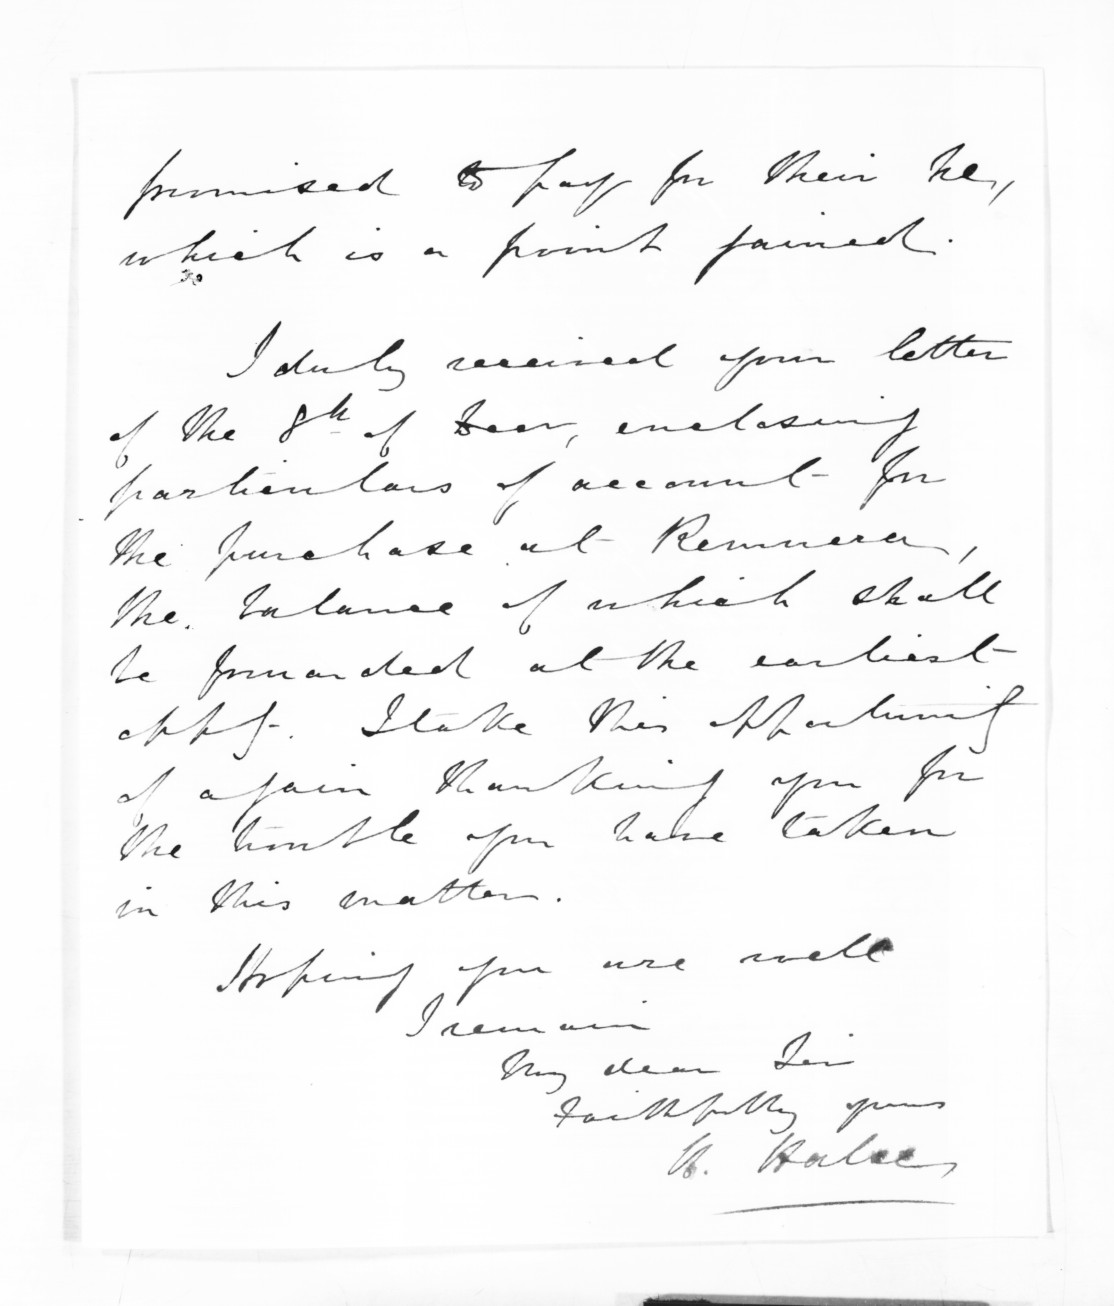 promised to pay for their
which is a point gained.
I duly received your letter
of the 8th of Decr, enclosing
particulars of account for
the purchase at Remuera,
the balance of which shall
be forwarded at the earliest
oppy. I take this opportunity
of again thanking you for
the trouble you have taken
in this matter.
Hoping you are well
I remain
My dear Sir
Faithfully yours
H. Halse